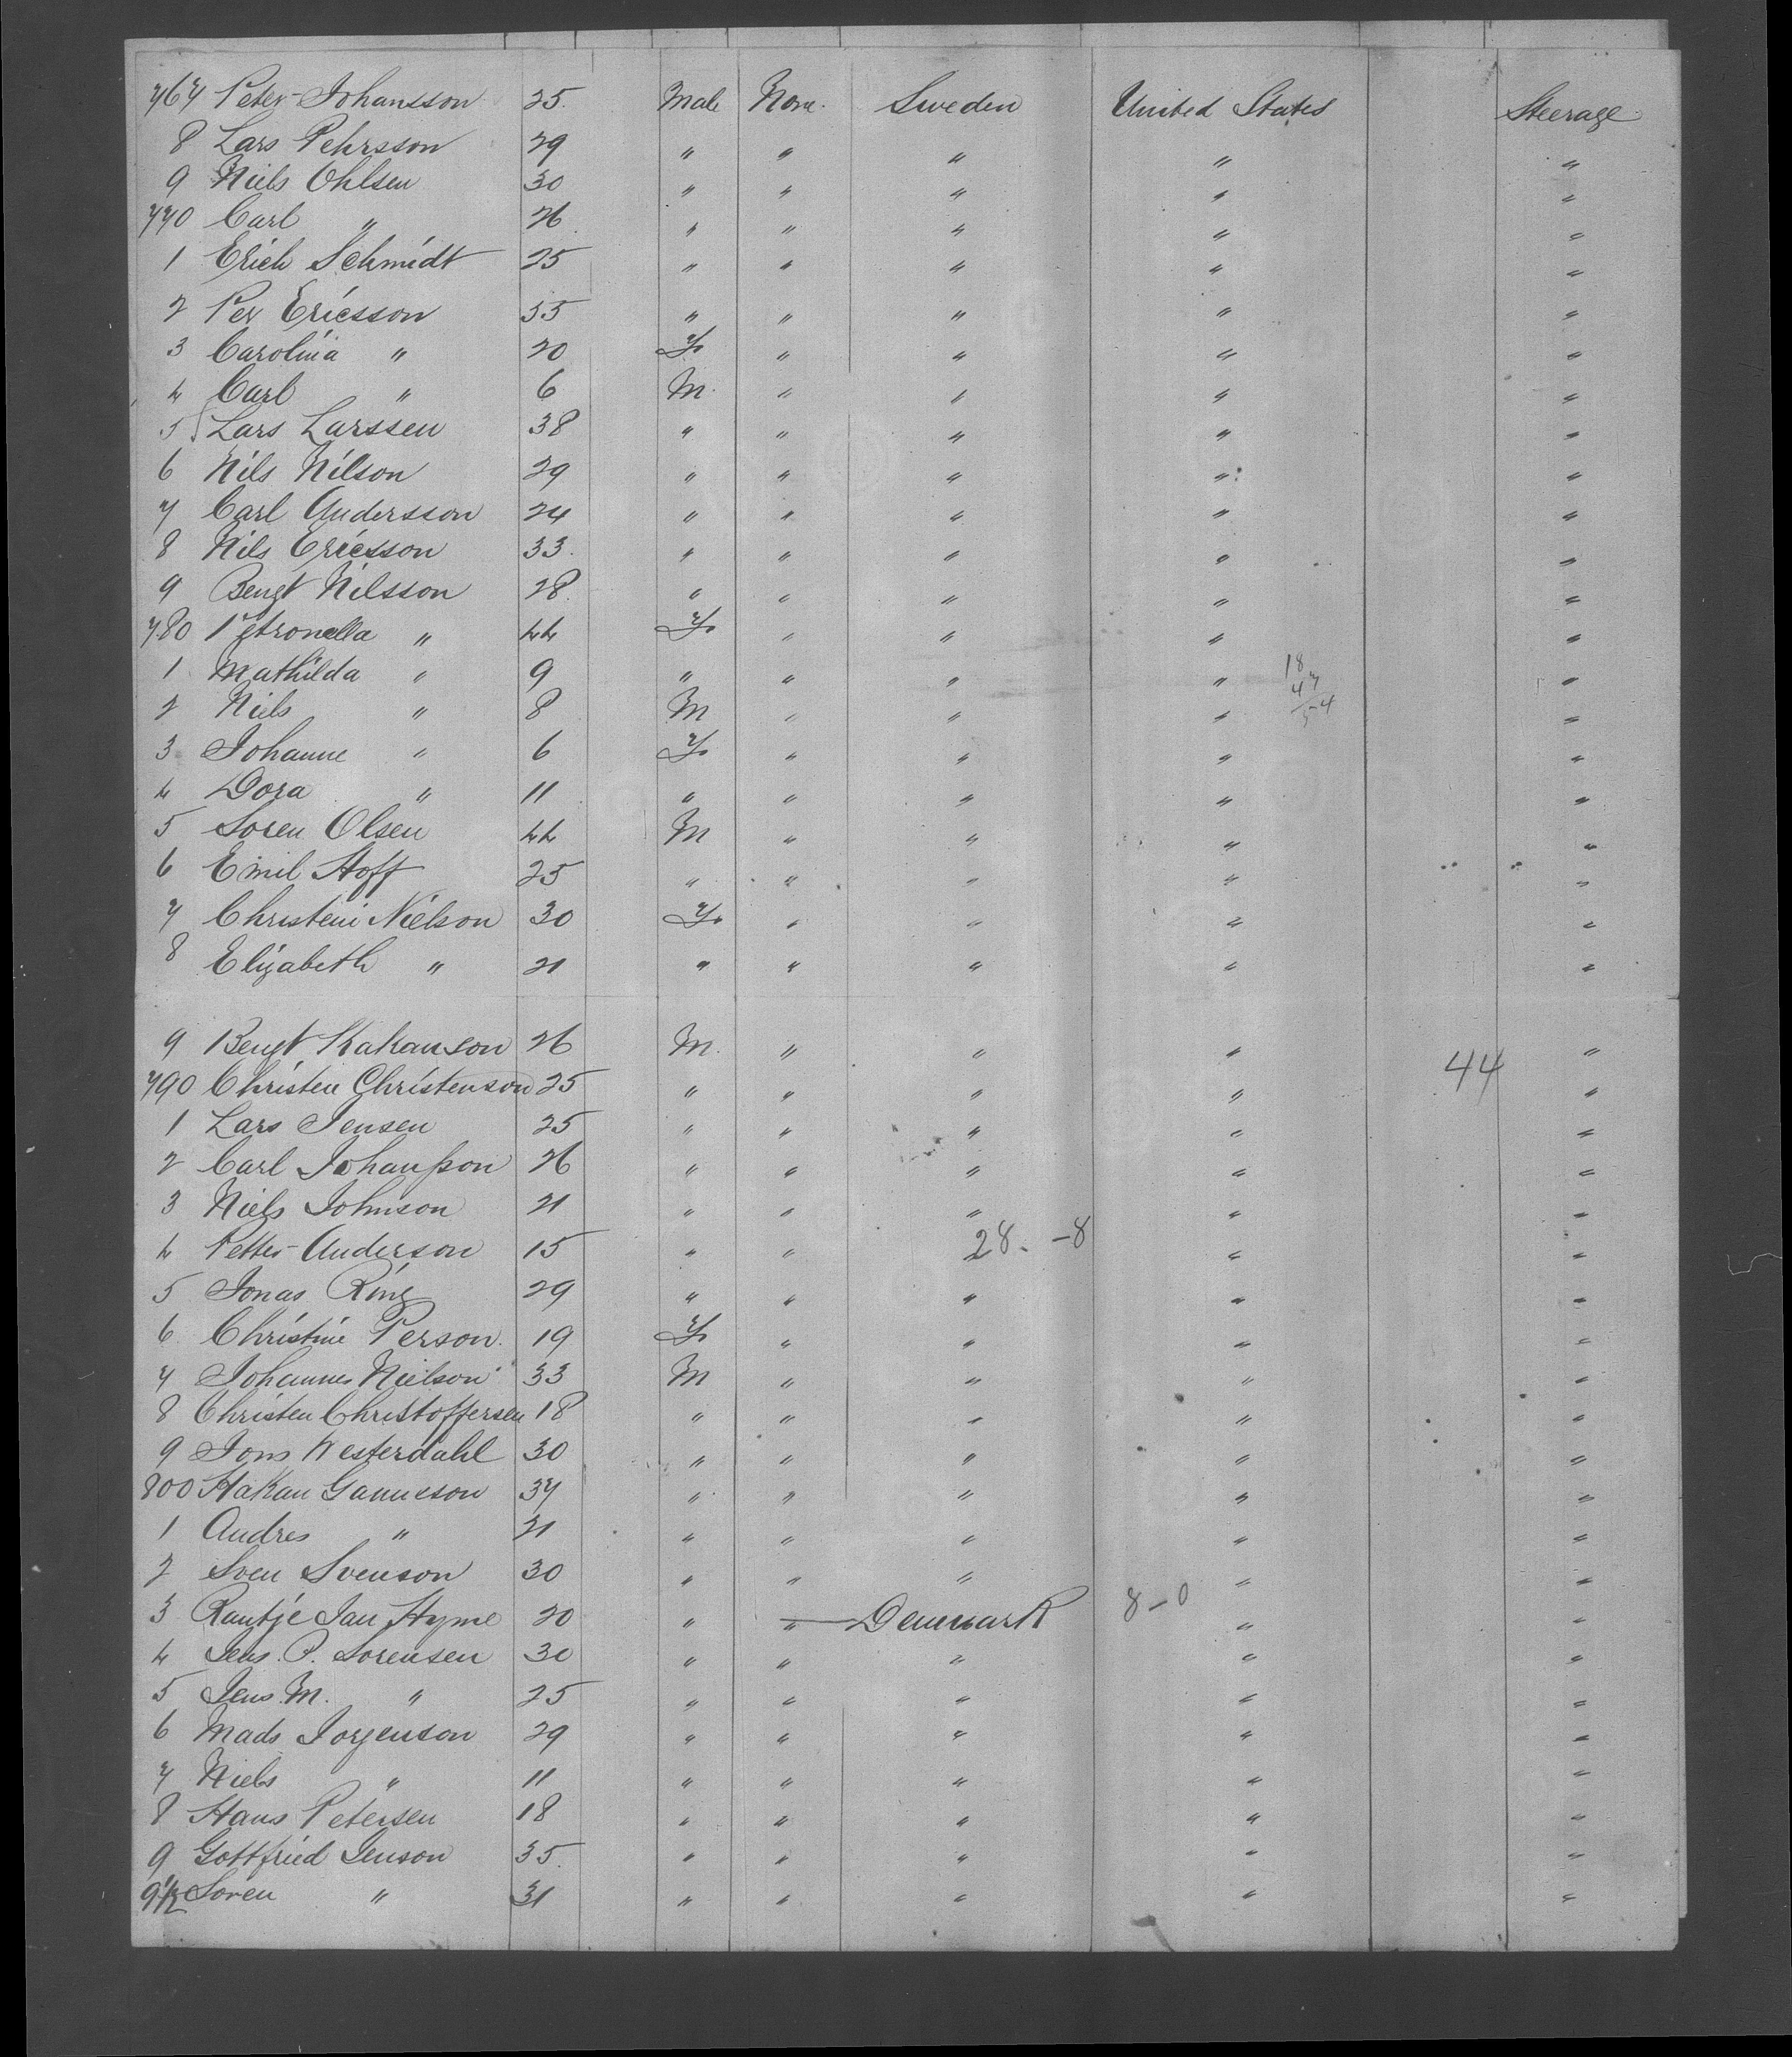 767 Peter Johansson 25. Male None. Sweden United States Steerage
8 Lars Pehrsson 29 " " " " "
9 Niels Ohlsen 30 " " " " "
770 Carl " 26 " " " " "
1 Erich Schmidt 25 " " " " "
2 Per Ericsson 35 " " " " "
3 Carolina " 20 F. " " " "
4 Carl " 6 M. " " " "
5 Lars Larssen 38 " " " " "
6 Nils Nilson 29 " " " " "
7 Carl Andersson 24 " " " " "
8 Nils Ericsson 33. " " " " "
9 Bengt Nilsson 28. " " " " "
780 Petronella " 44 F. " " " "
1 Mathilda " 9 " " " " 18 "
47
54
2 Niels " 8 M " " " "
3 Johanne " 6 F. " " " "
4 Dora " 11 " " " " "
5 Soren Olsen 44 M " " " "
6 Emil Hoff 25 " " " " "
7 Christeni Nielson 30 F. " " " "
8 Elizabeth " 21 " " " " "
9 Bengt Kakanson 26 M. " " " 44 "
790 Christen Christenson 25 " " " " "
1 Lars Jensen 25 " " " " "
2 Carl Johanßon 26 " " " " "
3 Niels Johnson 21 " " " " "
4 Petter Anderson 15 " " 28. -8 " "
5 Jonas Ring 29 " " " " "
6 Christine Person. 19 F. " " " "
7 Johannes Nielson 33 M " " " "
8 Christen Christoffersen 18 " " " " "
9 Jons Westerdahl 30 " " " " "
800 Hakan 37 " " " " "
1 Andres " 21 " " " " "
2 Sven Svenson 30 " " " " "
3 Rantje Jan Hyme 20 " " Denmark 8-0 " "
4 Jens. P. Sorensen 30 " " " " "
5 Jens. M. " 25 " " " " "
6 Mads Jorgenson 29 " " " " "
7 Niels " 11 " " " " "
8 Hans Petersen 18 " " " " "
9 Gottfried Jenson 35. " " " " "
9½ Soren " 31 " " " " "